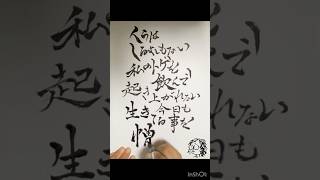 くうは
しょうもない
私のトゲを飲んで
起き上がれない
生きて今日も
る事を
憎
InShOt